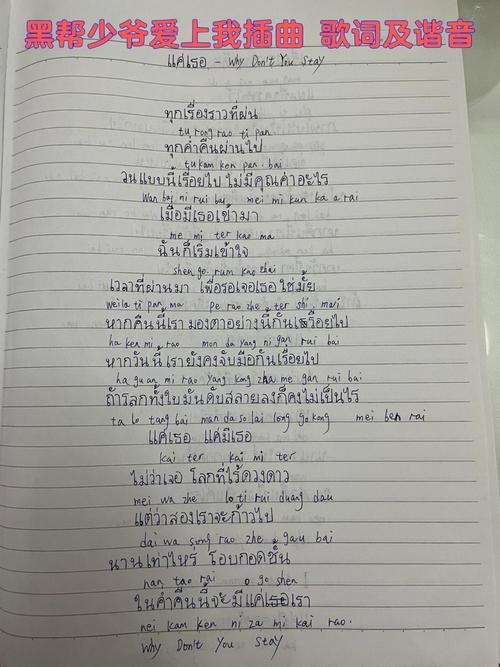 黑帮少爷爱上我插曲 歌词及谐音
แค่เธอ - Why Don't You Stay
ทุกเรื่องราวที่ผ่น
tu rong rao ti pan
ทุกค่ำคืนผ่านไป
tu kam ken pan. bai
วนแบบนี้เรื่อยไป ไม่มีคุณค่าอะไร
Wan bai ni rui bai mei mi kun ka a rai
เมื่อมีเธอเข้ามา
me mi ter kao ma
ฉันก็เริ่มเข้าใจ
shen go rum kao zhai
เวลาที่ผ่านมา เพื่อรอเจอเธอใช่มั้ย
weila ti pan ma pe rao zhe ter shi mai
หากคืนนี้เรา มองตาอย่างนี้กันเรื่อยไป
ha ken mi rao mon da yang ni gan rui bai
หากวันนี้เรายังคงจับมือกันเรื่อยไป
ha guan mi rao yang kong zha me gan rui bai
ถ้าโลกทั้งใบมันดับสลายลงก็คงไม่เป็นไร
ta lo tang bai man da so lai long go kong mei ben rai
แค่เธอ แค่มีเธอ
kai ter kai mi ter
ไม่ว่าเจอ โลกที่ไร้ดวงดาว
mei wa zhe lo ti rui duang dau
แต่ว่าสองเราจะก้าวไป
dai wa song rao zhe gau bai
นานเท่าไหร่ โอบกอดชั้น
nan tao rai o go shen
ในค่ำคืนนี้จะมีแค่เธอเรา
nei kam ken ni za mi kai rao.
Why Don't You Stay